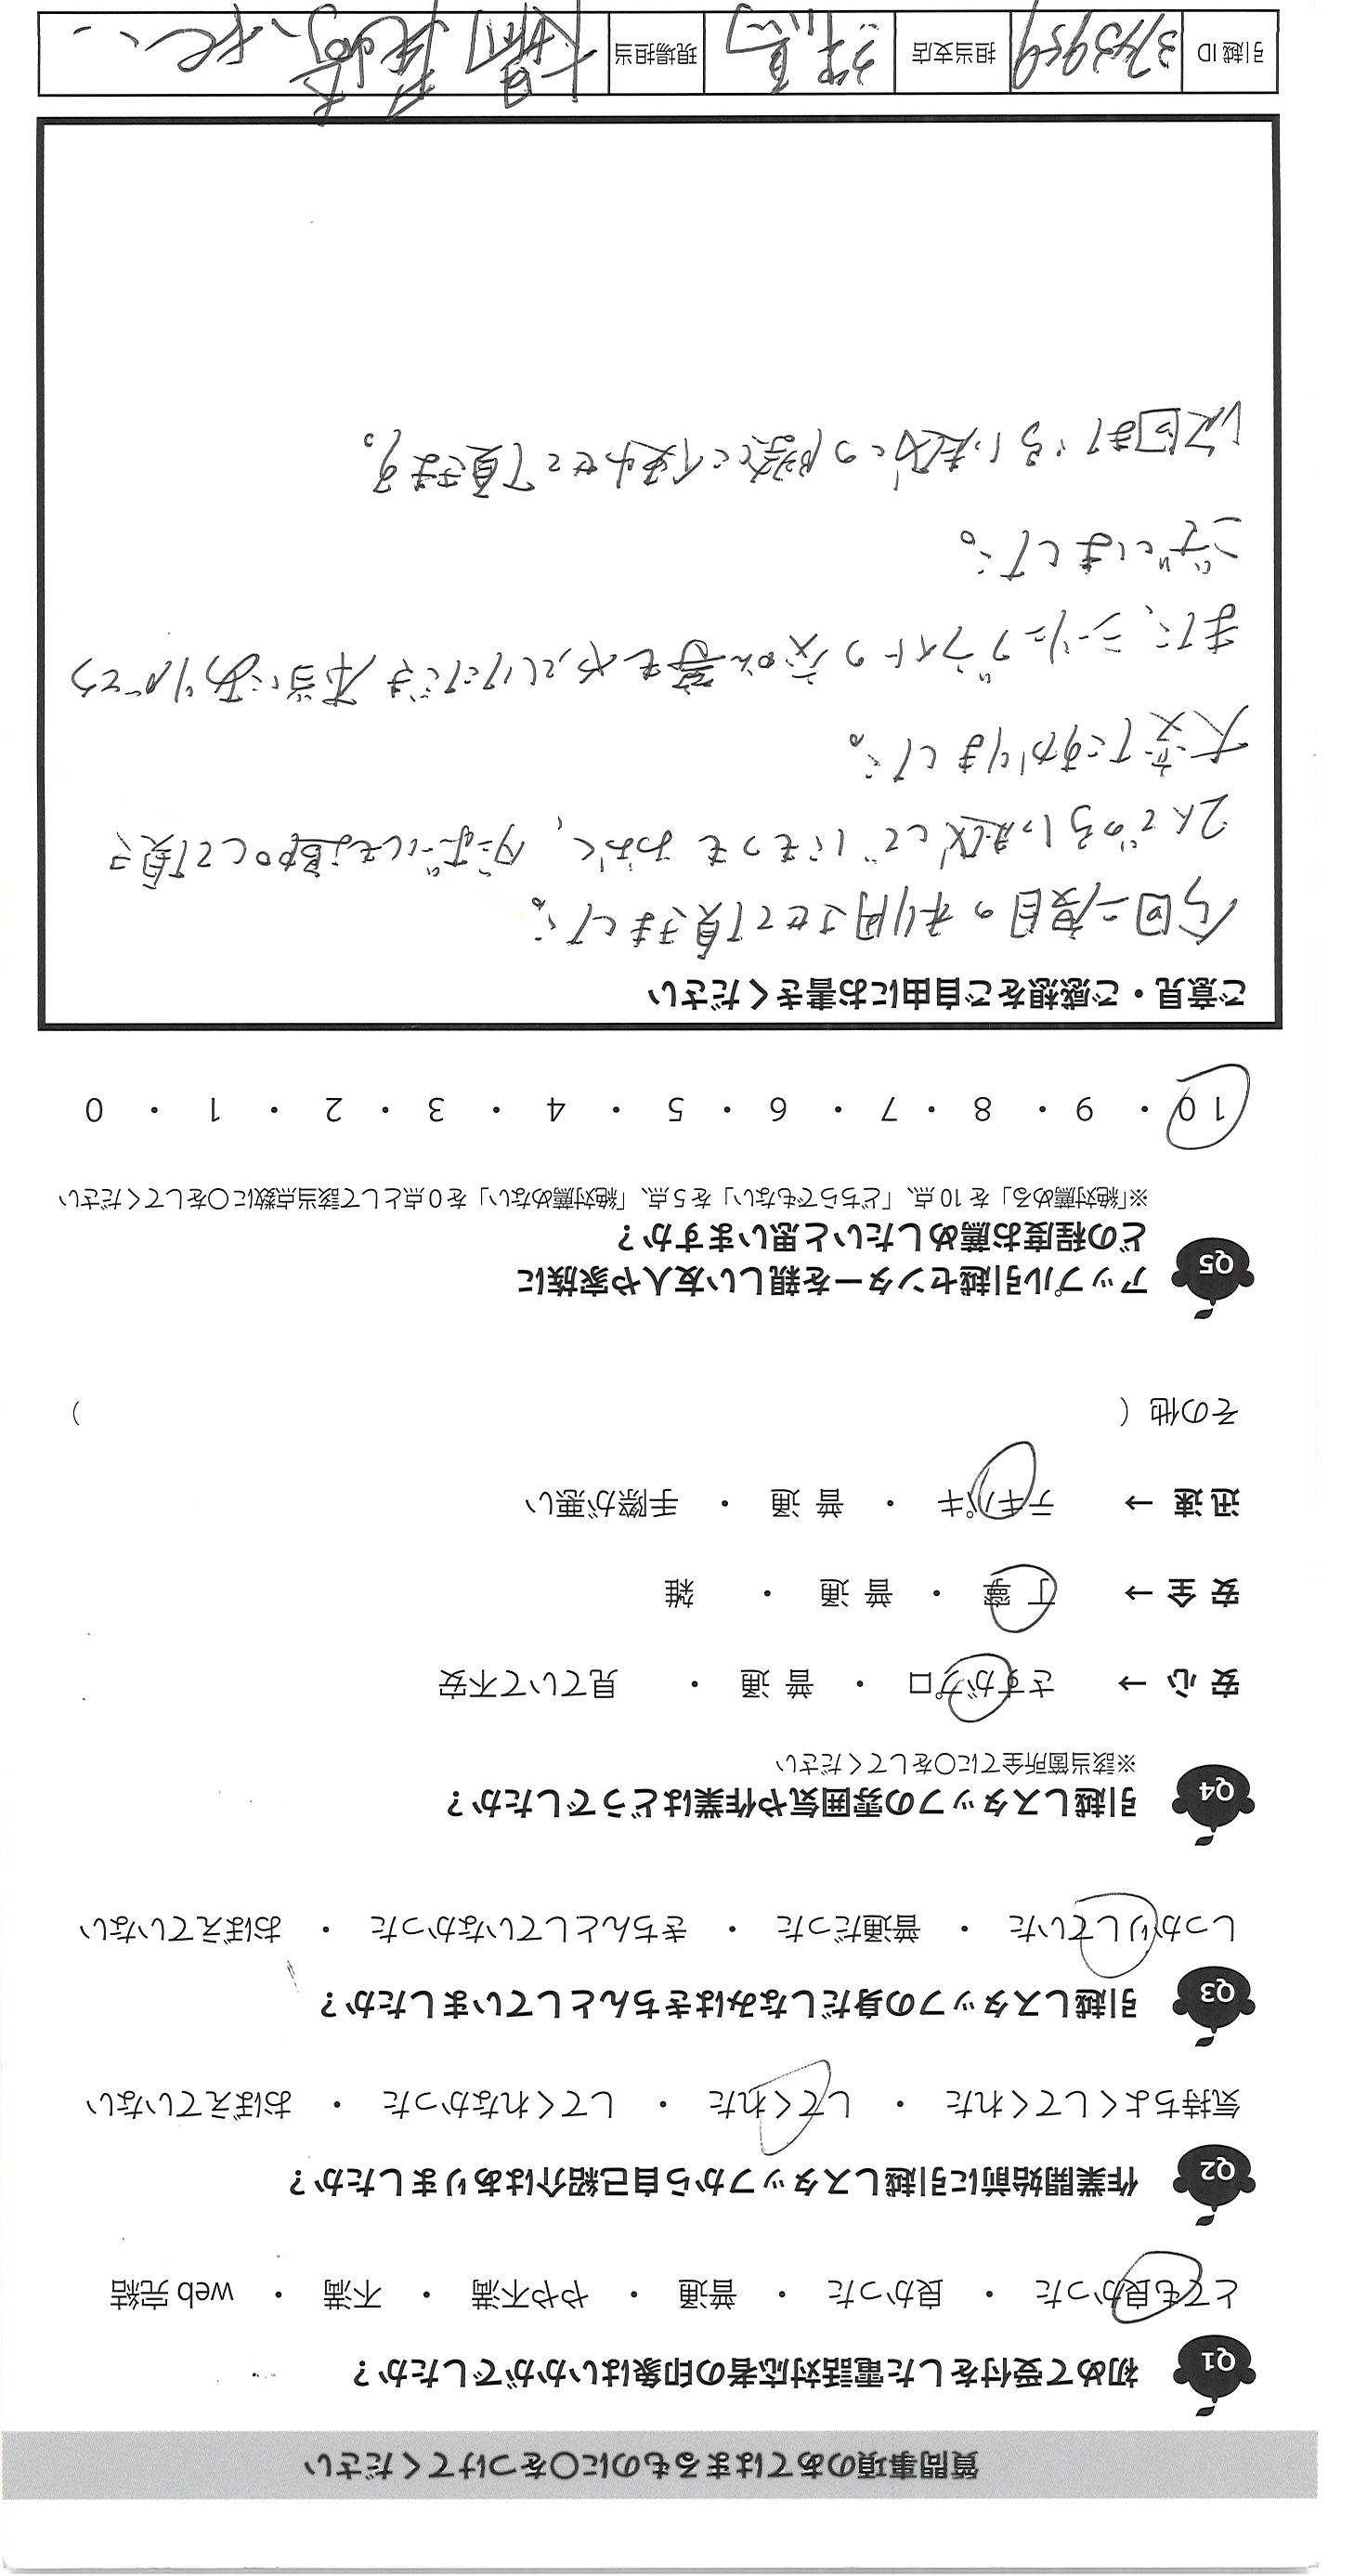 質問事項のあてはまるものに〇をつけてください
Q1 初めて受付をした電話対応者の印象はいかがでしたか?
とても良かった ・ 良かった ・ 普通 ・ やや不満 ・ 不満 ・ web 完結
Q2 作業開始前に引越しスタッフから自己紹介はありましたか?
気持ちよくしてくれた ・ してくれた ・ してくれなかった ・ おぼえていない
Q3 引越しスタッフの身だしなみはきちんとしていましたか?
しっかりしていた ・ 普通だった ・ きちんとしていなかった ・ おぼえていない
Q4 引越しスタッフの雰囲気や作業はどうでしたか?
※該当箇所全てに〇をしてください
安 心 → さすがプロ ・ 普 通 ・ 見ていて不安
安 全 → 丁 寧 ・ 普 通 ・ 雑
迅 速 → テキパキ ・ 普 通 ・ 手際が悪い
その他 ( )
Q5 アップル引越センターを親しい友人や家族に
どの程度お薦めしたいと思いますか?
※「絶対薦める」を 10 点、「どちらでもない」を 5 点、「絶対薦めない」を 0 点として該当点数に〇をしてください
10 ・ 9 ・ 8 ・ 7 ・ 6 ・ 5 ・ 4 ・ 3 ・ 2 ・ 1 ・ 0
ご意見・ご感想をご自由にお書きください
今回二度目の利用させて頂きました。
2人での引っ越しで にもつも おおく、ダンボールも追加して頂き
大変たすかりました。
また、シーリングライトの交かん等もやっていただき本当にありがとう
ございました。
次回また引っ越しの際に使わせて頂きます。
引越 ID 3743959 担当支店 群馬 現場担当